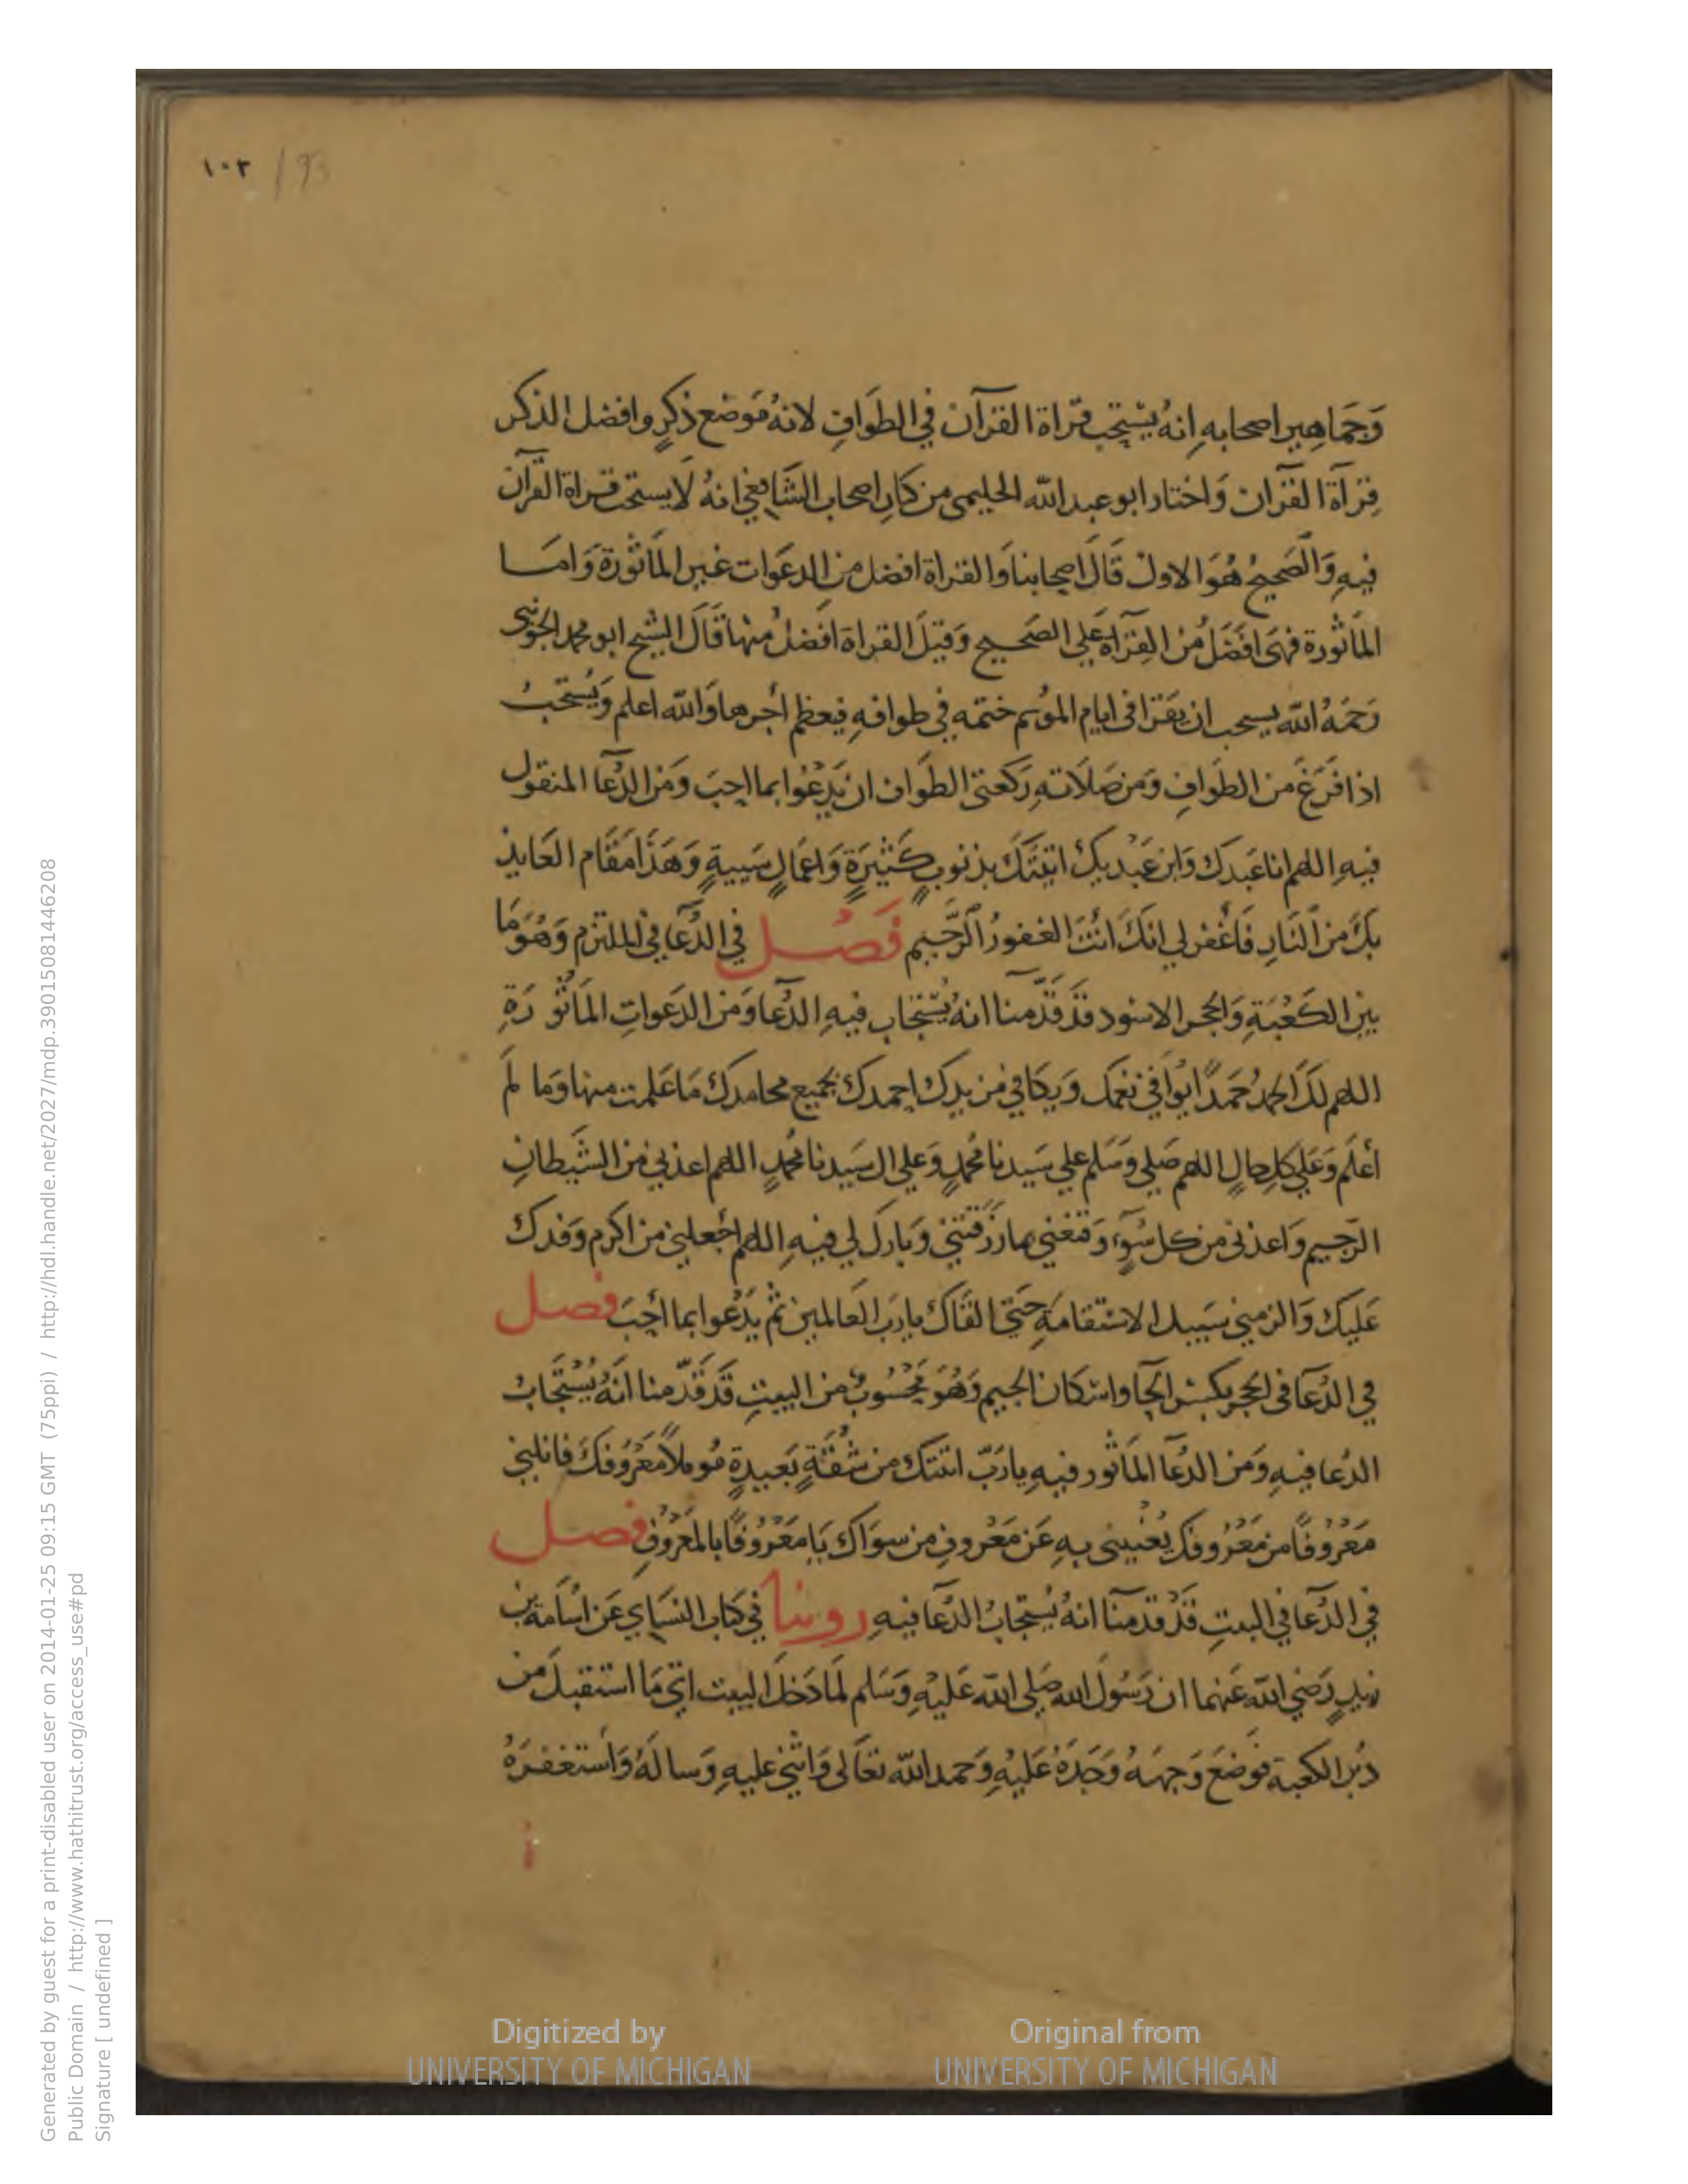 ١٠٢ / 93
وَجَمَاهِير اصحابهِ انهُ يسْتحب قراة القرآن في الطوَافِ لانهُ مَوضع ذكرٍ وافضل الذكر
قِرَآة القرآن وَاختار ابو عبد الله الحليمى من كبار اصحاب الشافعي انهُ لَا يستحب قراة القرآن
فيهِ وَالصَحيحُ هُوَ الاول قَالَ اصحابنا وَالقراة افضل من الدعَوات غير المَاثورة وَامَا
المَاثورة فهىَ افضَلُ من القِرآة عَلى الصَحيح وَقيلَ القراة افضلُ منها قَالَ الشيخ ابو محمد الجوينى
رَحمَهُ الله يسحب ان يقرا فى ايام الموُسم ختمه في طوافهِ فيعظم أجرها وَالله اعلم وَيُستحبُ
اذا فَرَغَ من الطَوافِ وَمن صَلَاتهِ رَكعتى الطوَاف ان يَدْعُوا بما احِبَ وَمن الدُّعَا المنقول
فيهِ اللهم انا عَبدك وَابن عَبْديك اتيْتكَ بذنوبٍ كَثيرَةٍ وَاعمَالٍ سَييةٍ وَهَذَا مَقَام العَايذ
بكَ من النَارِ فَاغْفر لي انكَ انْتَ الغفورُ الرَّحيم فَصْل في الدُعَآ في الملتزم وَهُوَ مَا
بين الكَعْبَةِ وَالحجر الاسْود قدَ قدَّمنا انهُ يُسْتجَاب فيهِ الدُعَآ وَمن الدَعَواتِ المَاثُورَةِ
اللهم لكَ الحمدُ حَمَدًا يوَافى نعمك وَيكَافى مزيدك احمدك بجميع محامدك مَا عَلمت منها وَما لَم
أعلَم وَعَلي كلِ حالٍ اللهم صَلي وَسَلم علي سَيدنا مُحمدٍ وَعلي ال سَيدنا مُحمدٍ اللهم اعذني من الشَيطانِ
الرَجيم وَاعذنى من كل سُوٓءٍ وَقنعْني بما رزَقتنيْ وَبارك لي فيهِ اللهم اجْعلني من اكرم وَفدك
عَليكَ وَالزمني سَبيل الاسْتقامَةِ حَتي القَاكَ يا رَبَ العَالمين ثم يَدْعُوا بما أحِبَ فصل
في الدُعَآ فى الحجر بكسْر الحآ واسْكان الجيم وَهُوَ مَحْسُوبٌ من البيتِ قَد قَدّمنا انَهُ يُسْتَجَابُ
الدُعا فيهِ وَمن الدُعآ المَاثور فيهِ يا رَبّ اتيتك من شُقةٍ بَعيدةٍ مُوملاً مَعْرُوفكَ فانلنى
مَعْرُوفًا من مَعْرُوفك يُغْنينى بهِ عَن مَعْروفِ من سوَاك يَا مَعْرُوفًا بالمَعْروُفِ فصل
في الدُعَآ في البيتِ قَدْ قدمنَا انهُ يُستجَابُ الدُعَآ فيهِ روينا في كتاب النسَاي عَن اسَامة بن
زيدٍ رَضي الله عَنهما ان رَسُولَ الله صَلى الله عَليْهِ وَسَلم لمَا دَخلَ البيت اتي مَا استقبلَ من
دبُر الكعبة فوَضعَ وَجههُ وَخدهُ عَليْهِ وَحمد الله تعَالى وَاثني عليهِ وَسالهُ وَاسْتغفرَهُ
Digitized by
UNIVERSITY OF MICHIGAN
Original from
UNIVERSITY OF MICHIGAN
Generated by guest for a print-disabled user on 2014-01-25 09:15 GMT (75ppi) / http://hdl.handle.net/2027/mdp.39015081446208
Public Domain / http://www.hathitrust.org/access_use#pd
Signature [ undefined ]